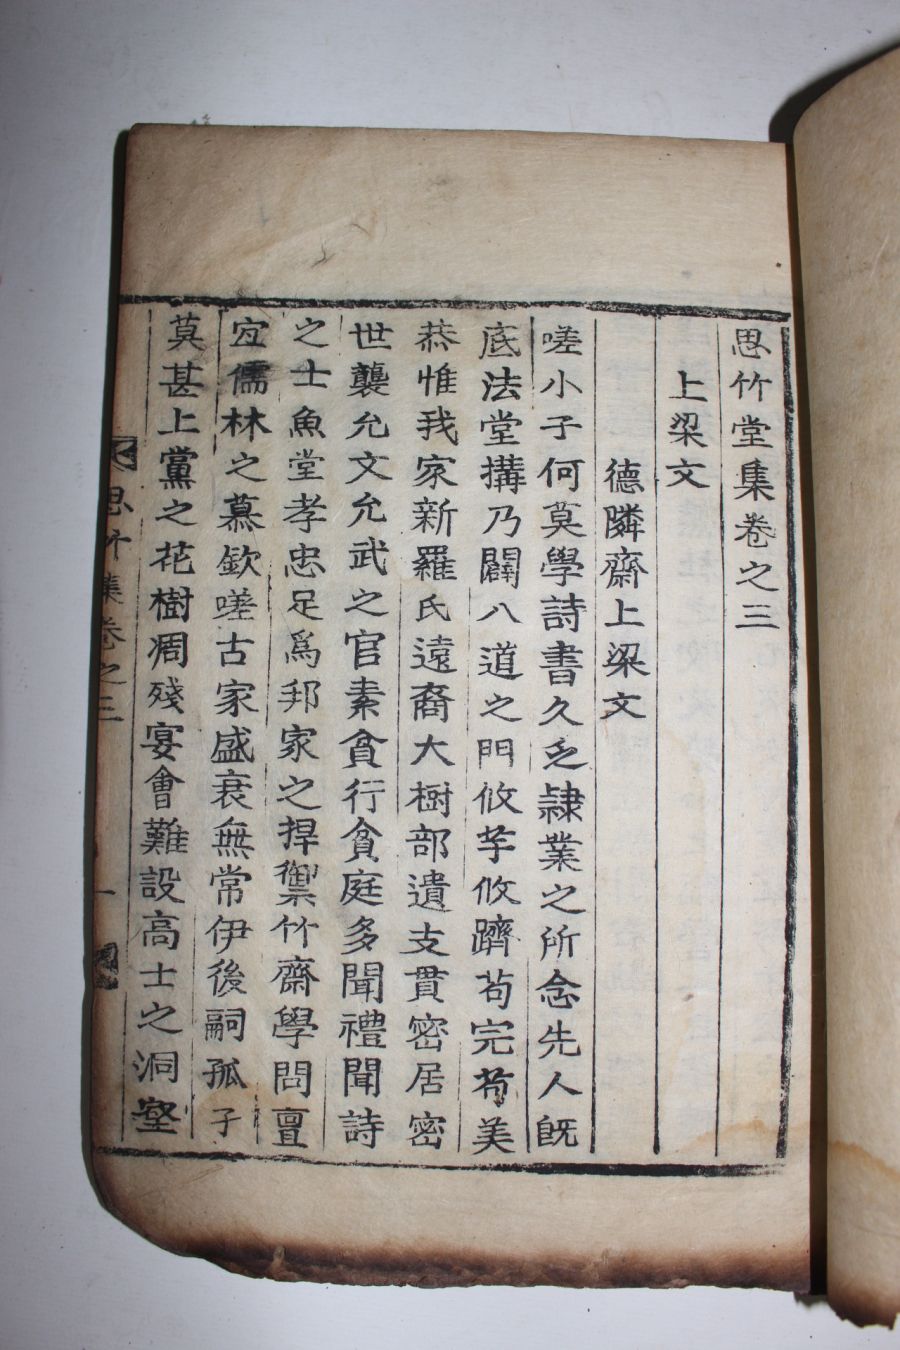 思竹堂集卷之三
上梁文
德隣齋上梁文
嗟小子何莫學詩書久乏隷業之所念先人旣
底法堂搆乃闢八道之門攸芋攸躋苟完苟美
恭惟我家新羅氏遠裔大樹部遺支貫密居密
世襲允文允武之官素貪行貪庭多聞禮聞詩
之士魚堂孝忠足爲邦家之捍禦竹齋學問亶
宜儒林之慕欽嗟古家盛衰無常伊後嗣孤孑
莫甚上黨之花樹凋殘宴會難設高士之洞壑
思竹集卷之三 一